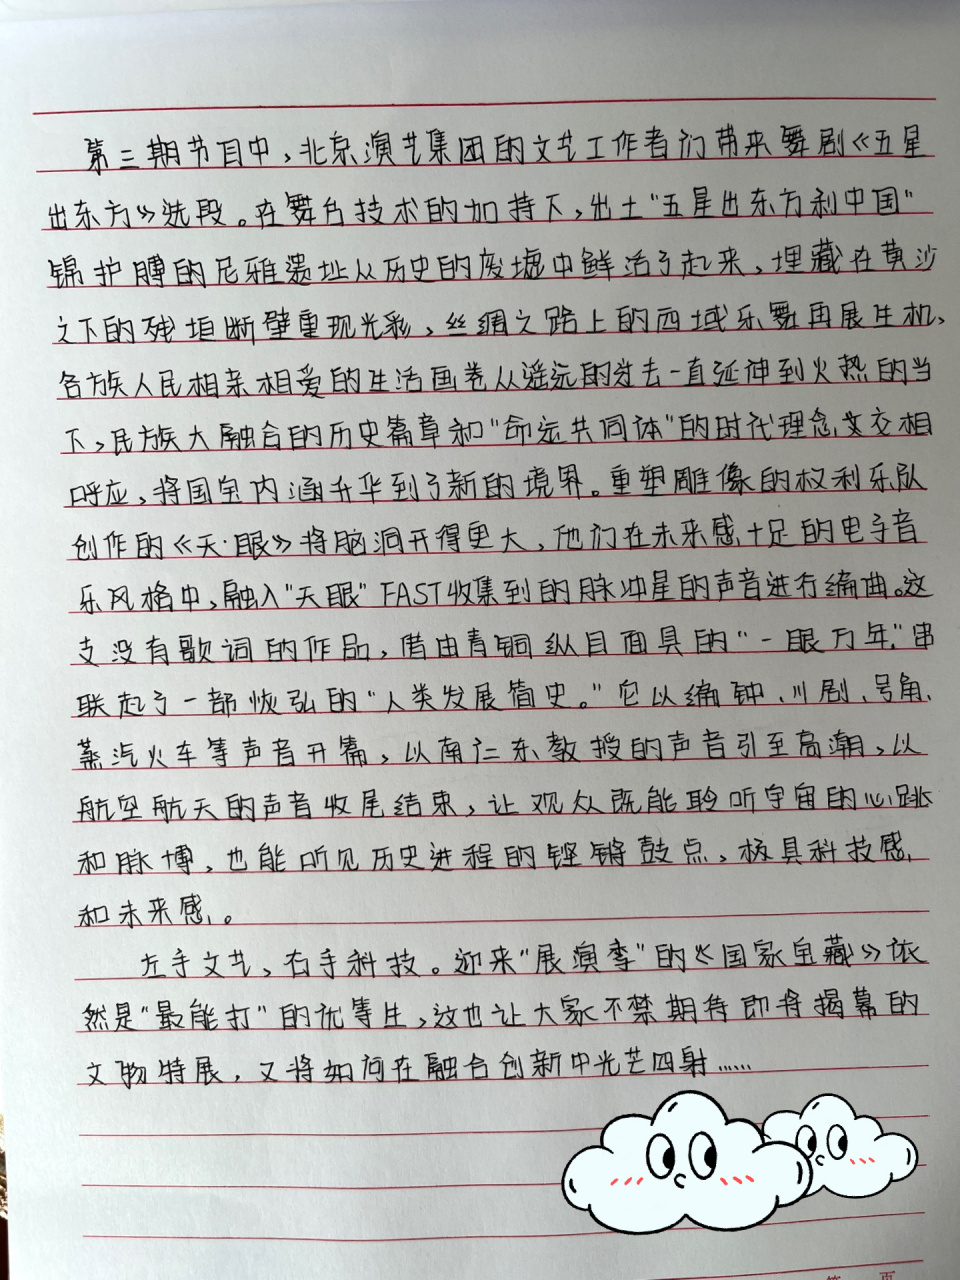 第三期节目中，北京演艺集团的文艺工作者们带来舞剧《五星
出东方》选段。在舞台技术的加持下，出土“五星出东方利中国”
锦护膊的尼雅遗址从历史的废墟中鲜活了起来，埋藏在黄沙
之下的残垣断壁重现光彩，丝绸之路上的西域乐舞再展生机，
各族人民相亲相爱的生活画卷从遥远的过去一直延伸到火热的当
下，民族大融合的历史篇章和“命运共同体”的时代理念交交相
呼应，将国宝内涵升华到了新的境界。重塑雕像的权利乐队
创作的《天·眼》将脑洞开得更大，他们在未来感十足的电子音
乐风格中，融入“天眼”FAST收集到的脉冲星的声音进行编曲。这
支没有歌词的作品，借由青铜纵目面具的“一眼万年”串
联起了一部恢弘的“人类发展简史。”它以编钟、川剧、号角、
蒸汽火车等声音开篇，以南仁东教授的声音引至高潮，以
航空航天的声音收尾结束，让观众既能聆听宇宙的心跳
和脉博，也能听见历史进程的铿锵鼓点，极具科技感
和未来感。
左手文艺，右手科技。迎来“展演季”的《国家宝藏》依
然是“最能打”的优等生，这也让大家不禁期待即将揭幕的
文物特展，又将如何在融合创新中光芒四射……
第 页